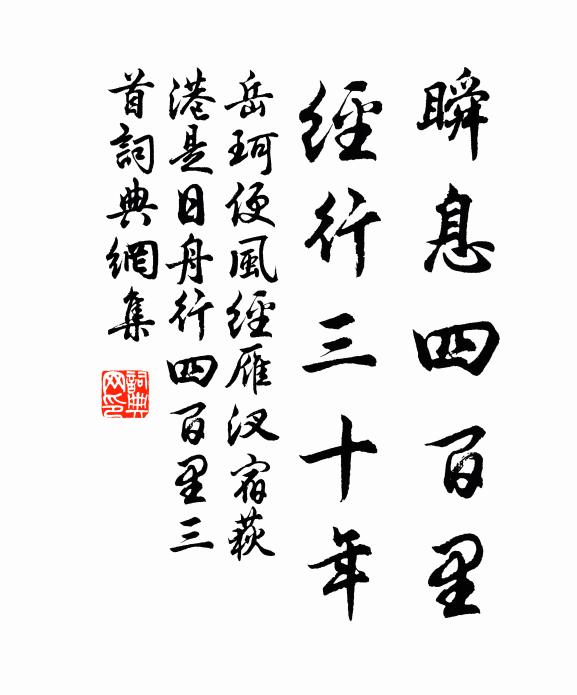 瞬息四百里
經行三十年
岳珂便風經雁汊宿荻
港是日舟行四百里三
首詞典網集
詞典網印